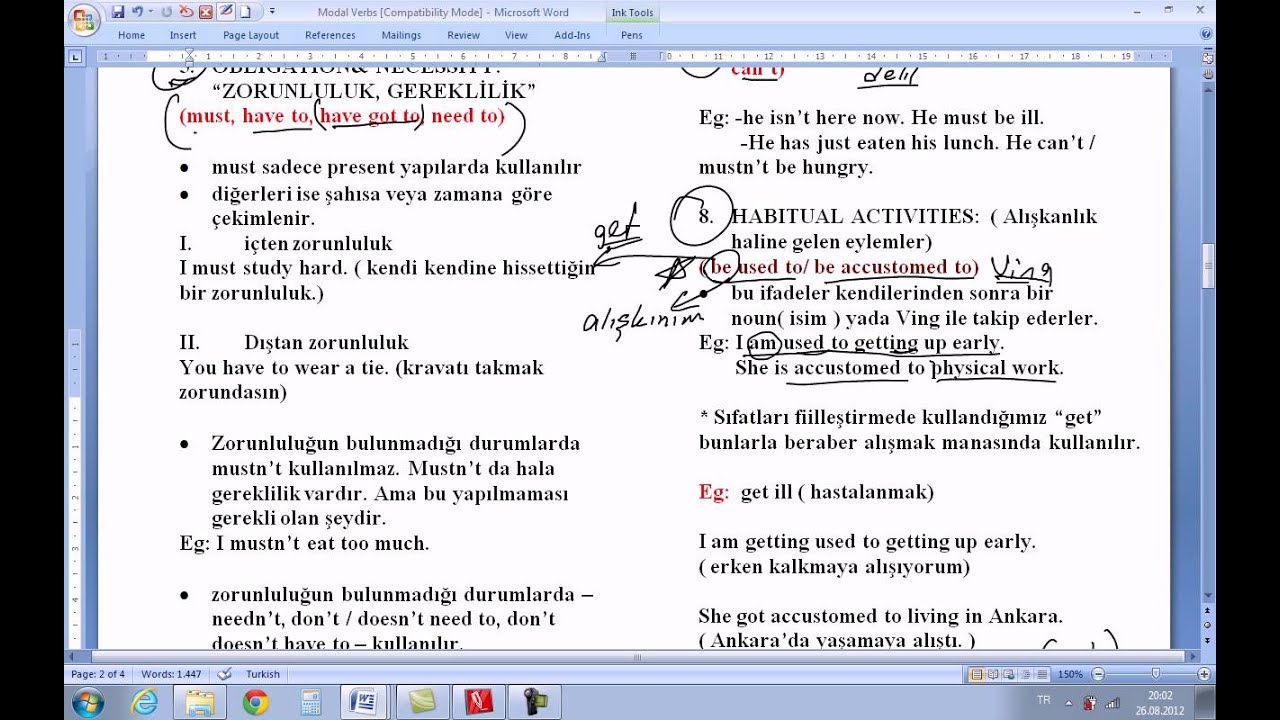 Modal Verbs [Compatibility Mode] - Microsoft Word
Ink Tools
Home Insert Page Layout References Mailings Review View Add-Ins Pens
OBLIGATION& NECESSITY:
"ZORUNLULUK, GEREKLİLİK"
(must, have to, (have got to) need to)
• must sadece present yapılarda kullanılır
• diğerleri ise şahısa veya zamana göre
çekimlenir.
I. içten zorunluluk
I must study hard. ( kendi kendine hissettiğin
bir zorunluluk.)
II. Dıştan zorunluluk
You have to wear a tie. (kravatı takmak
zorundasın)
• Zorunluluğun bulunmadığı durumlarda
mustn't kullanılmaz. Mustn't da hala
gereklilik vardır. Ama bu yapılmaması
gerekli olan şeydir.
Eg: I mustn't eat too much.
• zorunluluğun bulunmadığı durumlarda –
needn't, don't / doesn't need to, don't
doesn't have to – kullanılır.
can't)
delil
Eg: -he isn't here now. He must be ill.
-He has just eaten his lunch. He can't /
mustn't be hungry.
get
8. HABITUAL ACTIVITIES: ( Alışkanlık
haline gelen eylemler)
( be used to/ be accustomed to) Ving
• bu ifadeler kendilerinden sonra bir
noun( isim ) yada Ving ile takip ederler.
alışkınım
Eg: I am used to getting up early.
She is accustomed to physical work.
* Sıfatları fiilleştirmede kullandığımız "get"
bunlarla beraber alışmak manasında kullanılır.
Eg: get ill ( hastalanmak)
I am getting used to getting up early.
( erken kalkmaya alışıyorum)
She got accustomed to living in Ankara.
( Ankara'da yaşamaya alıştı. )
Page: 2 of 4 Words: 1.447 Turkish 150%
TR 20:02
26.08.2012